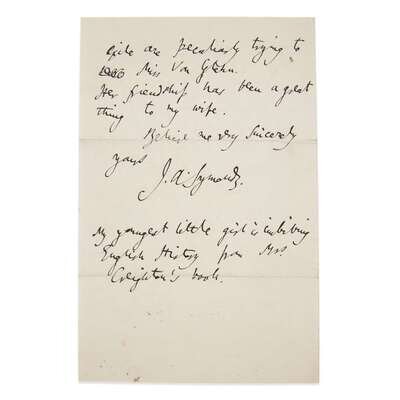 exile are peculiarly trying to
Miss Von Glehn.
Her friendship has been a great
thing to my wife.
Believe me very sincerely
yours
J. A. Symonds.
My youngest little girl is imbibing
English History from Mrs
Creighton's book.